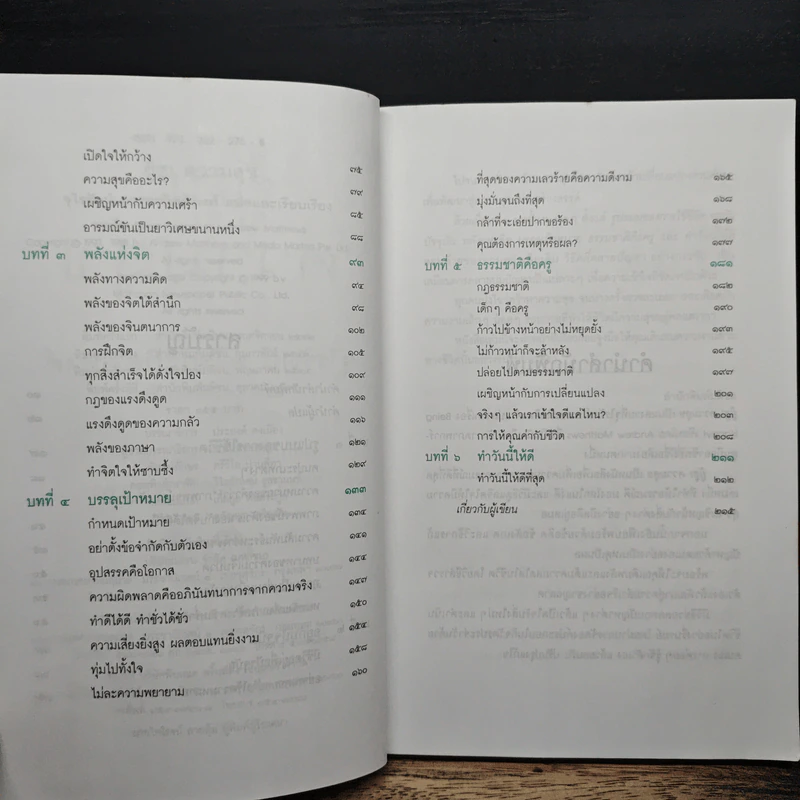 เปิดใจให้กว้าง ๗๕
ความสุขคืออะไร? ๗๙
เผชิญหน้ากับความเศร้า ๘๕
อารมณ์ขันเป็นยาวิเศษขนานหนึ่ง ๘๘
บทที่ ๓ พลังแห่งจิต ๙๓
พลังทางความคิด ๙๔
พลังของจิตใต้สำนึก ๙๘
พลังของจินตนาการ ๑๐๒
การฝึกจิต ๑๐๕
ทุกสิ่งสำเร็จได้ดั่งใจปอง ๑๐๙
กฎของแรงดึงดูด ๑๑๑
แรงดึงดูดของความกลัว ๑๑๖
พลังของภาษา ๑๒๑
ทำจิตใจให้ซาบซึ้ง ๑๒๙
บทที่ ๔ บรรลุเป้าหมาย ๑๓๓
กำหนดเป้าหมาย ๑๓๔
อย่าตั้งข้อจำกัดกับตัวเอง ๑๔๑
อุปสรรคคือโอกาส ๑๔๔
ความผิดพลาดคืออภินันทนาการจากความจริง ๑๔๗
ทำดีได้ดี ทำชั่วได้ชั่ว ๑๕๐
ความเสี่ยงยิ่งสูง ผลตอบแทนยิ่งงาม ๑๕๔
ทุ่มไปทั้งใจ ๑๕๘
ไม่ละความพยายาม ๑๖๐
ที่สุดของความเลวร้ายคือความดีงาม ๑๖๕
มุ่งมั่นจนถึงที่สุด ๑๖๘
กล้าที่จะเอ่ยปากขอร้อง ๑๗๒
คุณต้องการเหตุหรือผล? ๑๗๗
บทที่ ๕ ธรรมชาติคือครู ๑๘๑
กฎธรรมชาติ ๑๘๒
เด็กๆ คือครู ๑๙๐
ก้าวไปข้างหน้าอย่างไม่หยุดยั้ง ๑๙๓
ไม่ก้าวหน้าก็จะล้าหลัง ๑๙๕
ปล่อยไปตามธรรมชาติ ๑๙๗
เผชิญหน้ากับการเปลี่ยนแปลง ๒๐๑
จริงๆ แล้วเราเข้าใจดีแค่ไหน? ๒๐๓
การให้คุณค่ากับชีวิต ๒๐๘
บทที่ ๖ ทำวันนี้ให้ดี ๒๑๑
ทำวันนี้ให้ดีที่สุด ๒๑๒
เกี่ยวกับผู้เขียน ๒๑๕